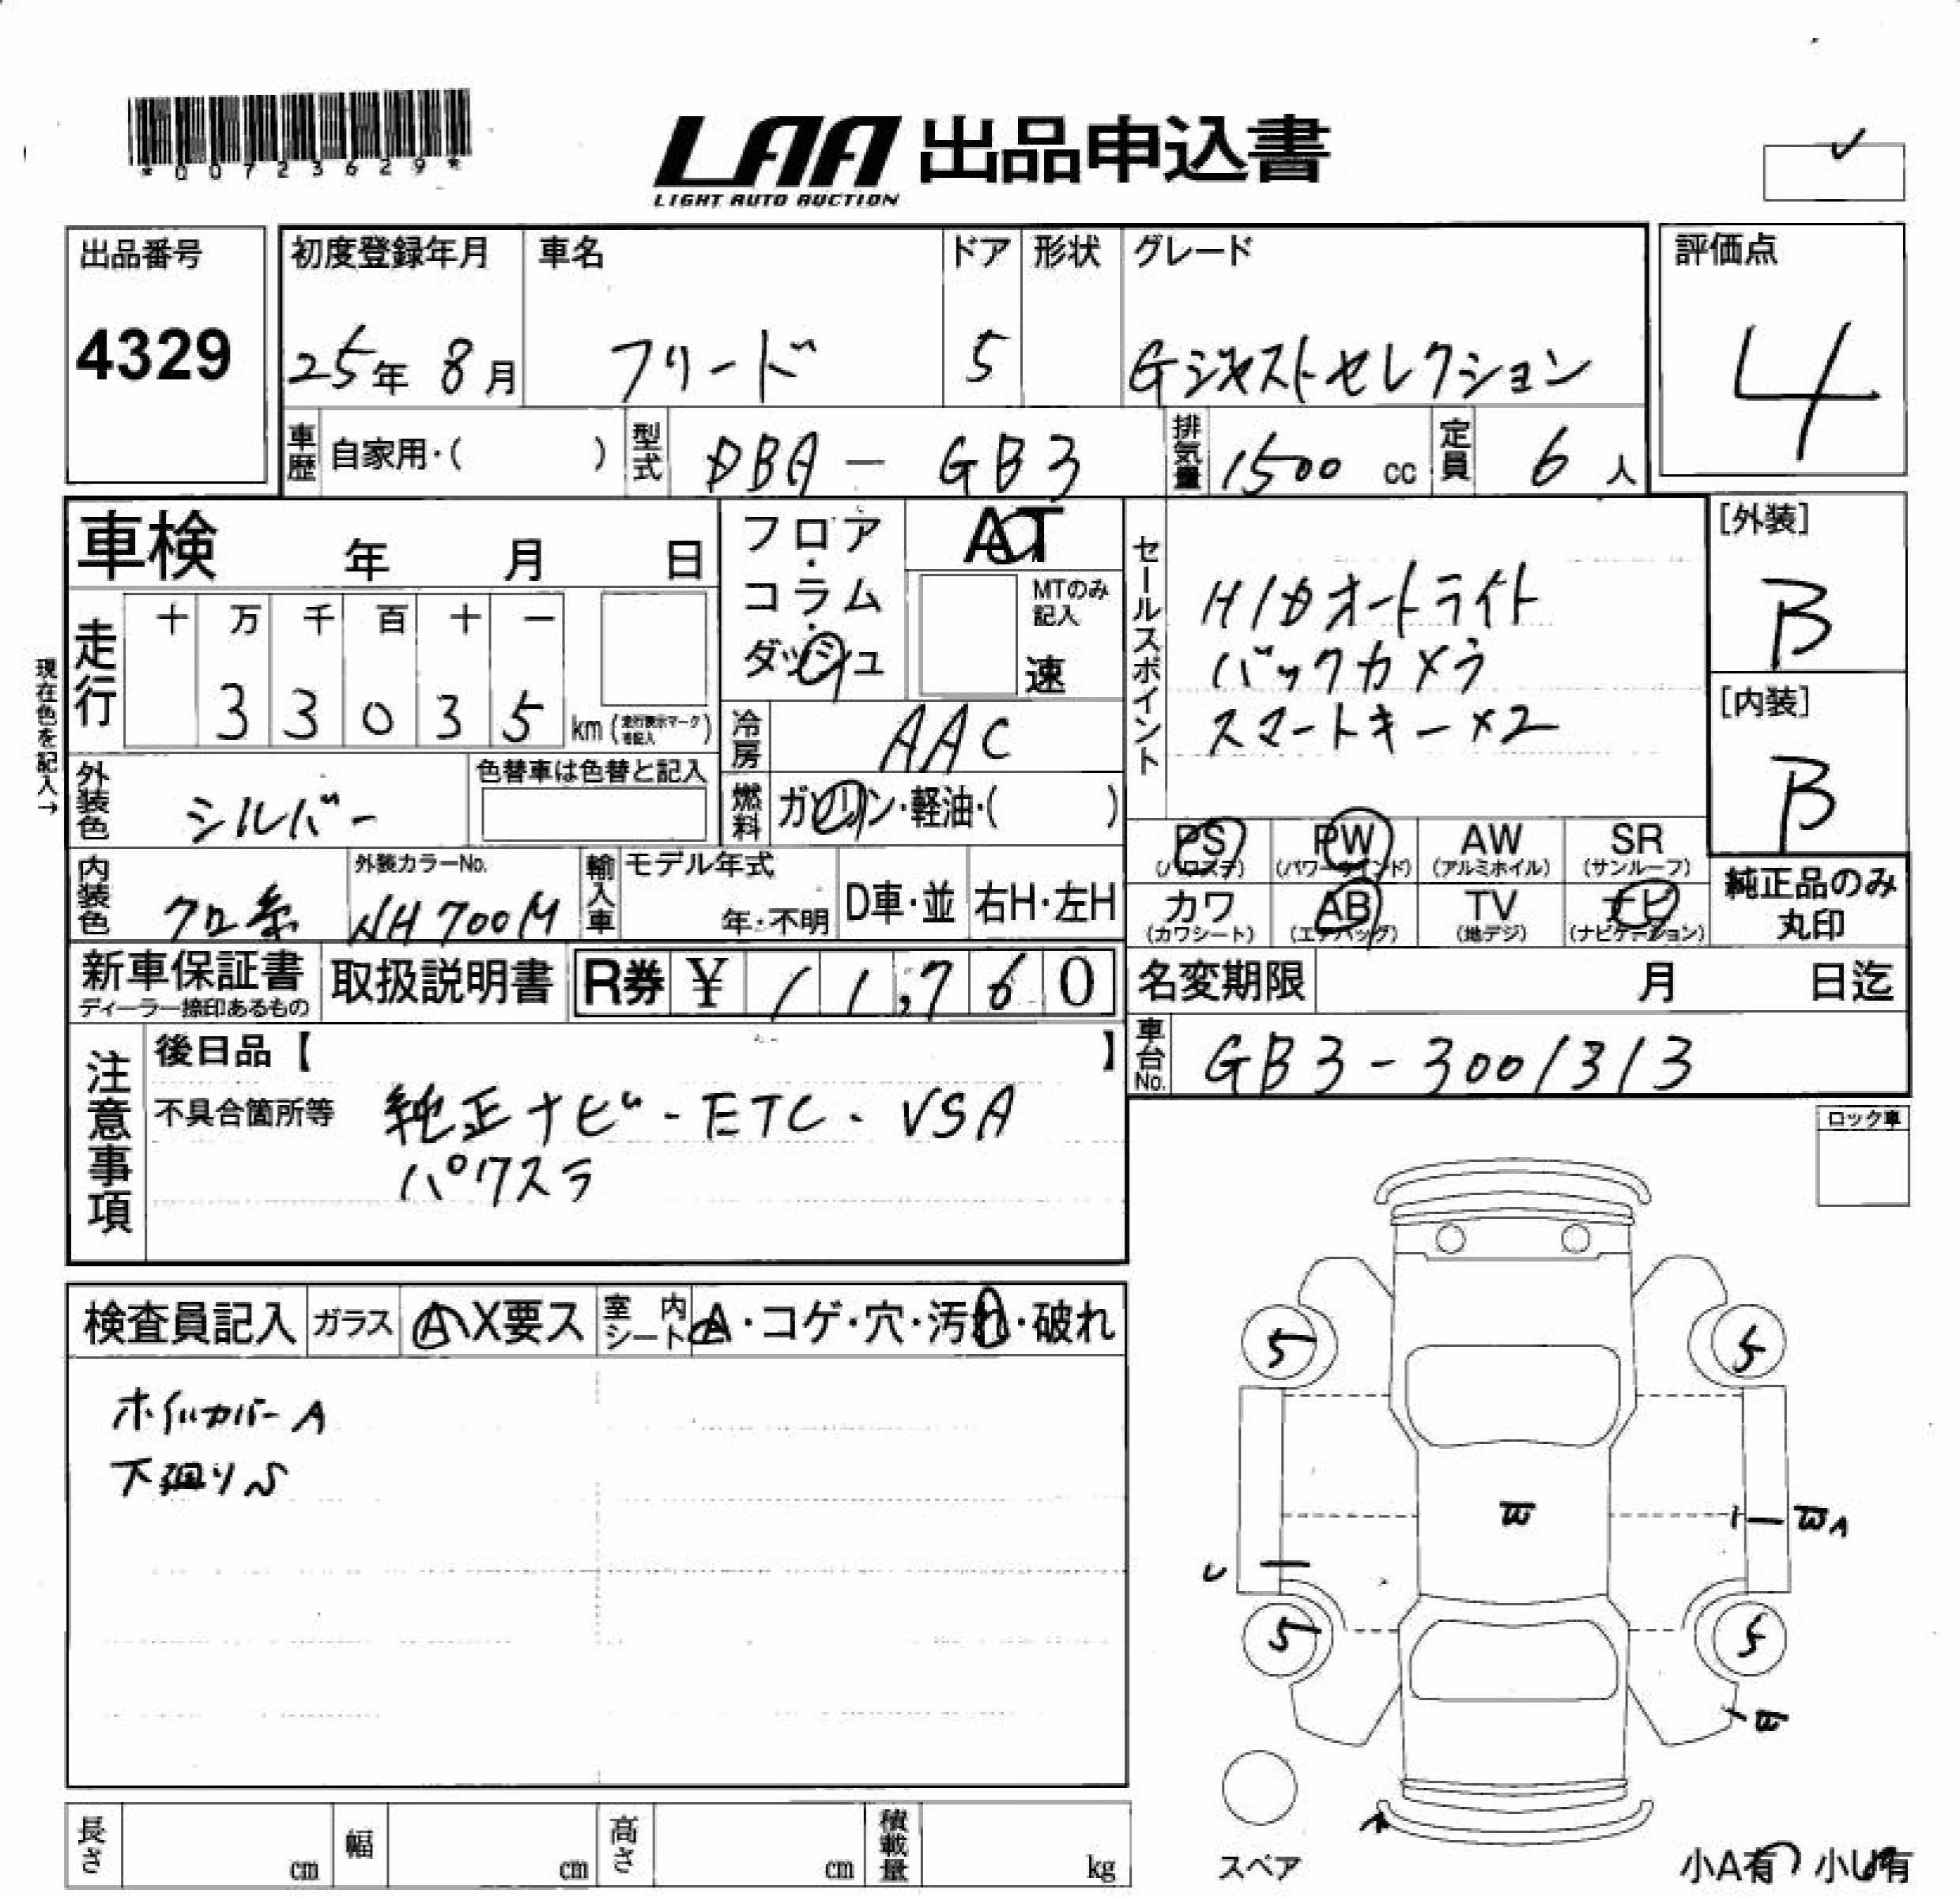 *00723629*
LAA 出品申込書
LIGHT AUTO AUCTION
出品番号
4329
初度登録年月
25年 8月
車名
フリード
ドア
5
形状
グレード
Gジャストセレクション
評価点
4
車歴
自家用・( )
型式
DBA - GB3
排気量
1500 cc
定員
6 人
車検 年 月 日
フロア・
コラム・
ダッシュ
AT
MTのみ
記入
速
セールスポイント
HIDオートライト
バックカメラ
スマートキー×2
[外装]
B
[内装]
B
現在色を記入→
走行
十 万 千 百 十 一
3 3 0 3 5 km(走行表示マーク
を記入)
冷房
AAC
外装色
シルバー
色替車は色替と記入
燃料
ガソリン・軽油・( )
PS
(パワステ)
PW
(パワーウインド)
AW
(アルミホイル)
SR
(サンルーフ)
カワ
(カワシート)
AB
(エアバッグ)
TV
(地デジ)
ナビ
(ナビゲーション)
純正品のみ
丸印
内装色
クロ系
外装カラーNo.
NH700M
輸入車
モデル年式
年・不明
D車・並
右H・左H
新車保証書
ディーラー捺印あるもの
取扱説明書
R券 ¥ 11,760
名変期限 月 日迄
車台No.
GB3-3001313
注意事項
後日品【 】
不具合箇所等
純正ナビ-ETC-VSA
パワスラ
ロック車
検査員記入
ガラス
A X要ス
室内
シート
A・コゲ・穴・汚れ・破れ
ホイルカバーA
下廻りS
5
5
W
WA
U
5
5
W
A
スペア
小A有 小U有
長さ cm
幅 cm
高さ cm
積載量 kg